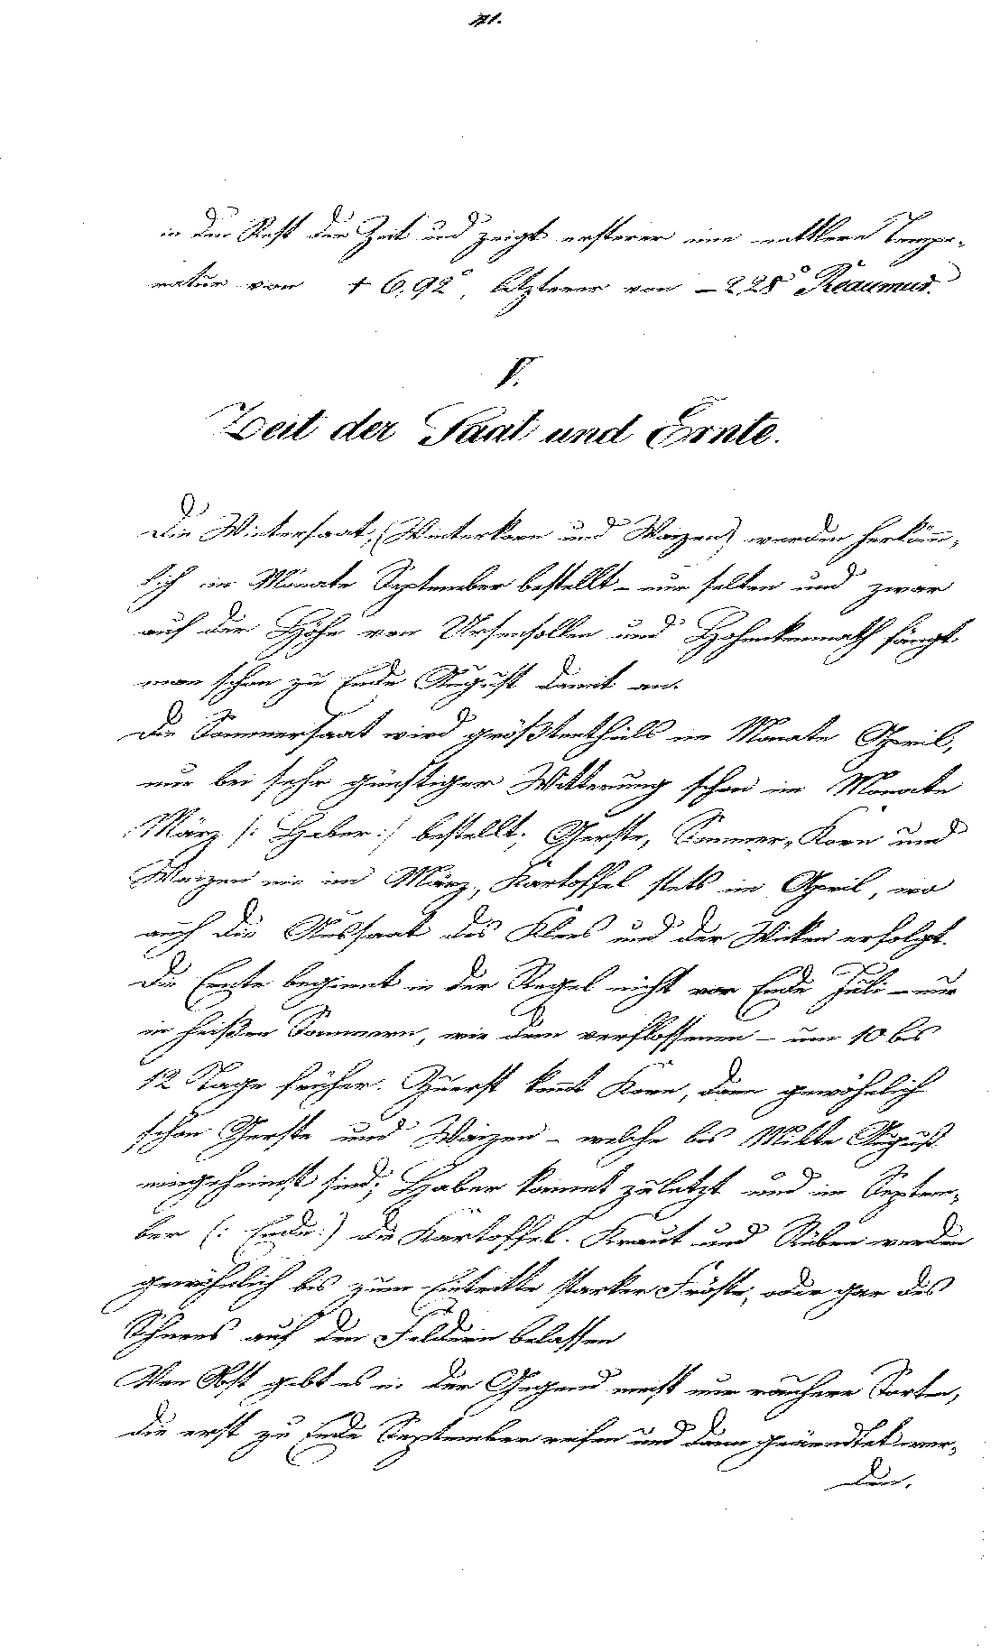 in den Rest der Zeit und zeigt ersterer eine mittlere Tempe-
ratur von + 6,92°, letzterer von – 2,28° Réaumur.
V.
Zeit der Saat und Ernte.
Die Wintersaat, (Winterkorn und Waizen) werden herkömm-
lich im Monate September bestellt – nur selten und zwar
auf der Höhe von Ursensollen und Hohenkemnath fängt
man schon zu Ende August damit an.
Die Sommersaat wird größtentheils im Monate April,
nur bei sehr günstiger Witterung schon im Monate
März /: Haber :/ bestellt; Gerste, Sommer-Korn und
Waizen nie im März, Kartoffel stets im April, wo
auch die Aussaat des Klees und der Wicken erfolgt.
Die Ernte beginnt in der Regel nicht vor Ende Juli – nur
in heißen Sommern, wie dem verflossenen – um 10 bis
12 Tage früher. Zuerst kommt Korn, dann gewöhnlich
schon Gerste und Waizen – welche bis Mitte August
eingeheimst sind; Haber kommt zuletzt und im Septem-
ber (: Ende :) die Kartoffel. Kraut und Rüben werden
gewöhnlich bis zum Eintritte starker Fröste, oder gar des
Schnees auf den Feldern belassen
Von Obst gibt es in der Gegend meist nur rauhere Sorten,
die erst zu Ende September reifen und dann geärndtet wer-
den.